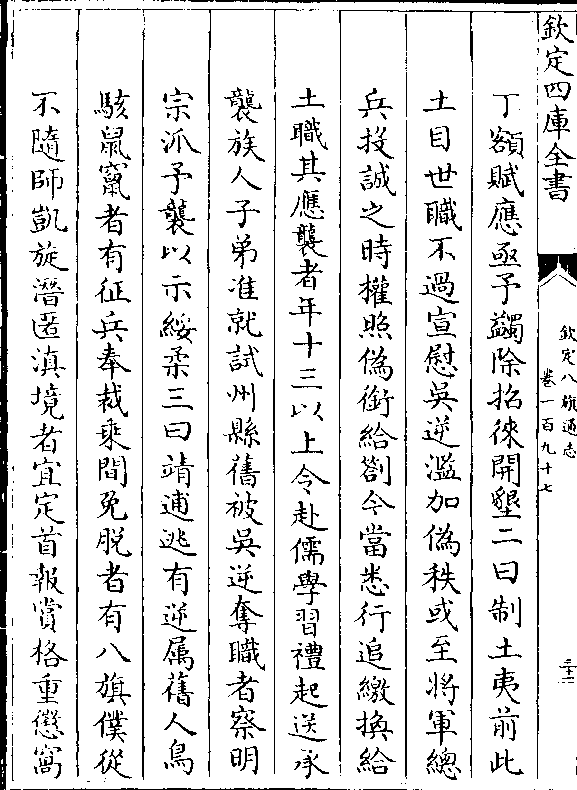 欽定四庫全書
欽定八旗通志
卷一百九十七
三十二
丁額賦應亟予蠲除招徠開墾二曰制土夷前此
土目世職不過宣慰吳逆濫加偽秩或至將軍總
兵投誠之時權照偽銜給劄今當悉行追繳換給
土職其應襲者年十三以上令赴儒學習禮起送承
襲族人子弟准就試州縣舊被吳逆奪職者察明
宗派予襲以示綏柔三曰靖逋逃有逆屬舊人鳥
駭鼠竄者有征兵奉裁乘間免脫者有八旗僕從
不隨師凱旋潛匿滇境者宜定首報賞格重懲窩